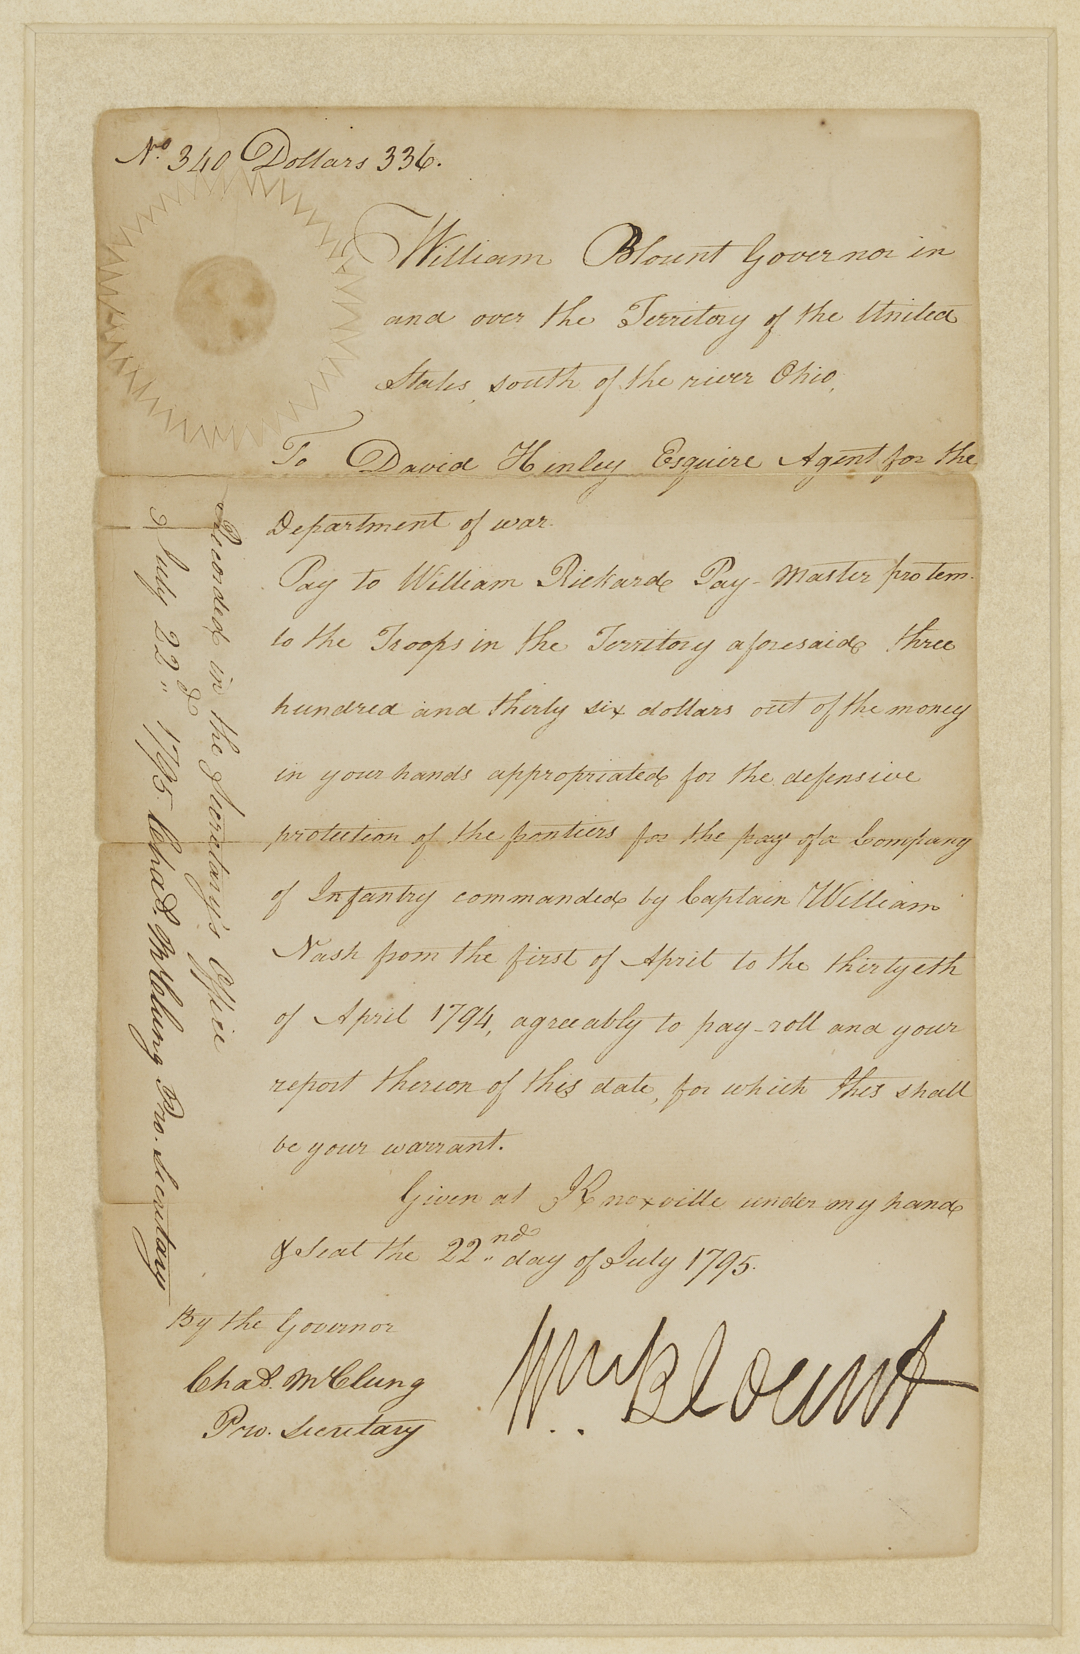 No. 340 Dollars 336.
William Blount Governor in
and over the Territory of the United
States, south of the river Ohio,
To David Henley Esquire Agent for the
Department of war.
Pay to William Rickard Pay-Master protem.
to the Troops in the Territory aforesaid three
hundred and thirty six dollars out of the money
in your hands appropriated for the defensive
protection of the frontiers for the pay of a Company
of Infantry commanded by Captain William
Nash from the first of April to the thirtyeth
of April 1794, agreeably to pay-roll and your
report thereon of this date, for which this shall
be your warrant.
Given at Knoxville under my hand
& seal the 22nd day of July 1795.
By the Governor
Chas. McClung
Pro. Secretary
Wm Blount
Recorded in the Secretary's Office
July 22d 1795. Chas. McClung Pro. Secretary